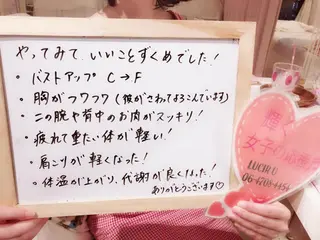 やってみて いいことずくめでした!
・バストアップ C→F
・胸がフワフワ (彼がさわってよろこんでいます)
・二の腕や背中のお肉がスッキリ!
・疲れて重たい体が軽い!
・肩こりが軽くなった!
・体温が上がり、代謝が良くなった!
ありがとうございます♡
輝く
女子の応援
LUCIR U